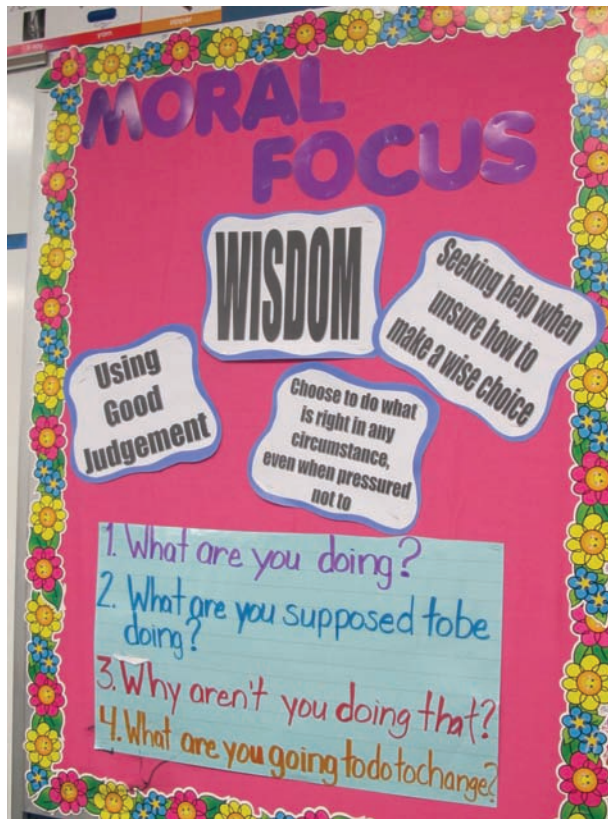 MORAL
FOCUS
WISDOM
Seeking help when
unsure how to
make a wise choice
Using
Good
Judgement
Choose to do what
is right in any
circumstance,
even when pressured
not to
1. What are you doing?
2. What are you supposed tobe
doing?
3. Why aren't you doing that?
4. What are you going todotochange?